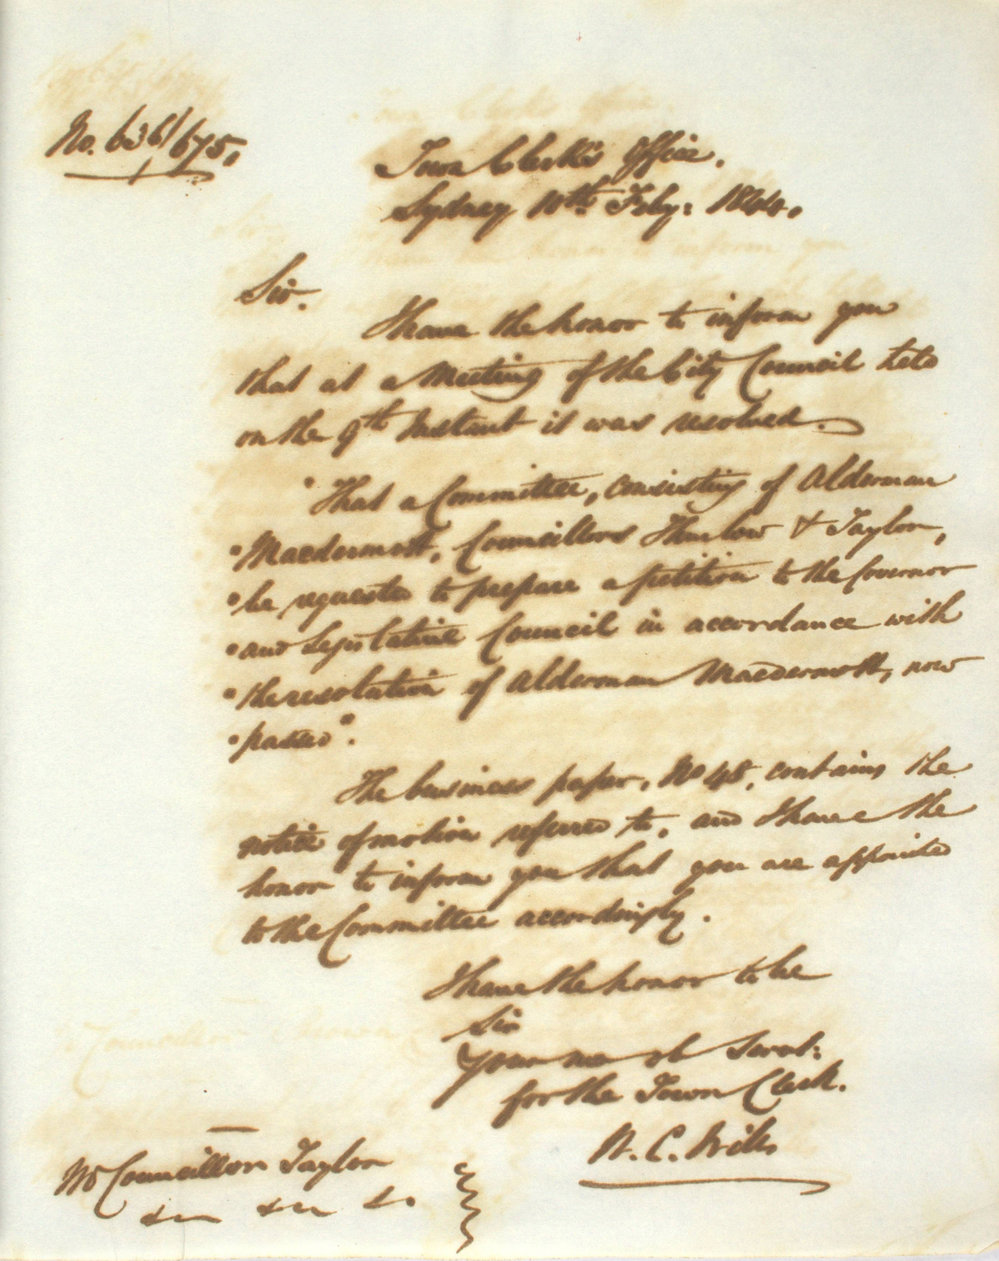 No. 636/675.
Town Clerk's Office.
Sydney 10th Feby: 1844.
Sir.
I have the honor to inform you
that at a Meeting of the City Council held
on the 9th Instant it was resolved.
"That a Committee, consisting of Alderman
"Macdermott, Councillors Thurlow & Taylor,
"be requested to prepare a petition to the Governor
"and Legislative Council in accordance with
"the resolution of Alderman Macdermott, now
"passed".
The business paper, No 48, contains the
notice of motion referred to, and I have the
honor to inform you that you are appointed
to the Committee accordingly.
I have the honor to be
Sir
Your mo ob Servt:
for the Town Clerk.
Mr Councillor Taylor
&c &c &c